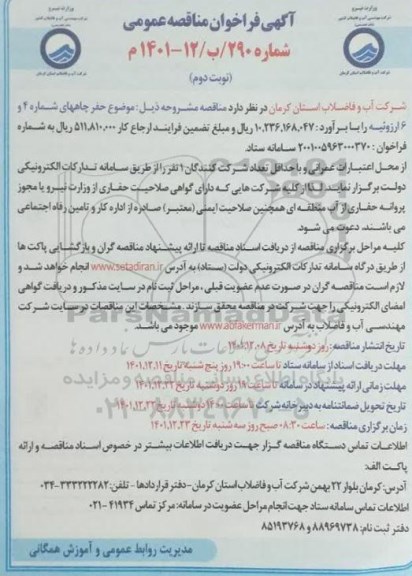 وزارت نیرو
وزارت نیرو
آگهی فراخوان مناقصه عمومی
شماره ۲۹۰/ب/۱۲-۱۴۰۱ م
(نوبت دوم)
شرکت آب و فاضلاب استان کرمان در نظر دارد مناقصه مشروحه ذیل: موضوع حفر چاههای شماره ۴ و
۶ ارزوئیه را با برآورد: ۱۰,۲۳۶,۱۶۸,۰۴۷ ریال و مبلغ تضمین فرایند ارجاع کار ۵۱۱,۸۱۰,۰۰۰ ریال به شماره
فراخوان: ۲۰۰۱۰۰۵۹۶۳۰۰۰۳۷۰ سامانه ستاد.
از محل اعتبارات عمرانی و با حداقل تعداد شرکت کنندگان ۱ نفر را از طریق سامانه تدارکات الکترونیکی
دولت برگزار نماید. لذا از کلیه شرکت هایی که دارای گواهی صلاحیت حفاری از وزارت نیرو یا مجوز
پروانه حفاری از آب منطقه ای همچنین صلاحیت ایمنی (معتبر) صادره از اداره کار و تامین رفاه اجتماعی
می باشند، دعوت می شود.
کلیه مراحل برگزاری مناقصه از دریافت اسناد مناقصه تا ارائه پیشنهاد مناقصه گران و بازگشایی پاکت ها
از طریق درگاه سامانه تدارکات الکترونیکی دولت (ستاد) به آدرس www.setadiran.ir انجام خواهد شد و
لازم است مناقصه گران در صورت عدم عضویت قبلی، مراحل ثبت نام در سایت مذکور و دریافت گواهی
امضای الکترونیکی را جهت شرکت در مناقصه محقق سازند. مشخصات این مناقصات در سایت شرکت
مهندسی آب و فاضلاب به آدرس www.abfakerman.ir موجود می باشد.
تاریخ انتشار مناقصه: روز دوشنبه تاریخ ۱۴۰۱,۱۲,۰۸
مهلت دریافت اسناد از سامانه ستاد تا ساعت ۱۹:۰۰ روز پنج شنبه تاریخ ۱۴۰۱,۱۲,۱۱
مهلت زمانی ارائه پیشنهاد در سامانه تا ساعت ۱۸ روز دوشنبه تاریخ ۱۴۰۱,۱۲,۲۲
تاریخ تحویل ضمانتنامه به دبیرخانه شرکت تا ساعت ۱۴:۰۰ دوشنبه تاریخ ۱۴۰۱,۱۲,۲۲
زمان برگزاری مناقصه: ساعت ۰۸:۳۰ صبح روز سه شنبه تاریخ ۱۴۰۱,۱۲,۲۳
اطلاعات تماس دستگاه مناقصه گزار جهت دریافت اطلاعات بیشتر در خصوص اسناد مناقصه و ارائه
پاکت الف:
آدرس: کرمان بلوار ۲۲ بهمن شرکت آب و فاضلاب استان کرمان - دفتر قراردادها - تلفن: ۳۳۳۲۲۲۸۲-۰۳۴
اطلاعات تماس سامانه ستاد جهت انجام مراحل عضویت در سامانه: مرکز تماس ۴۱۹۳۴-۰۲۱
دفتر ثبت نام: ۸۸۹۶۹۷۳۸ و ۸۵۱۹۳۷۶۸
مدیریت روابط عمومی و آموزش همگانی
ParsNamadData
۰۲۱-۸۸۳۴۹۶۷۰-۵